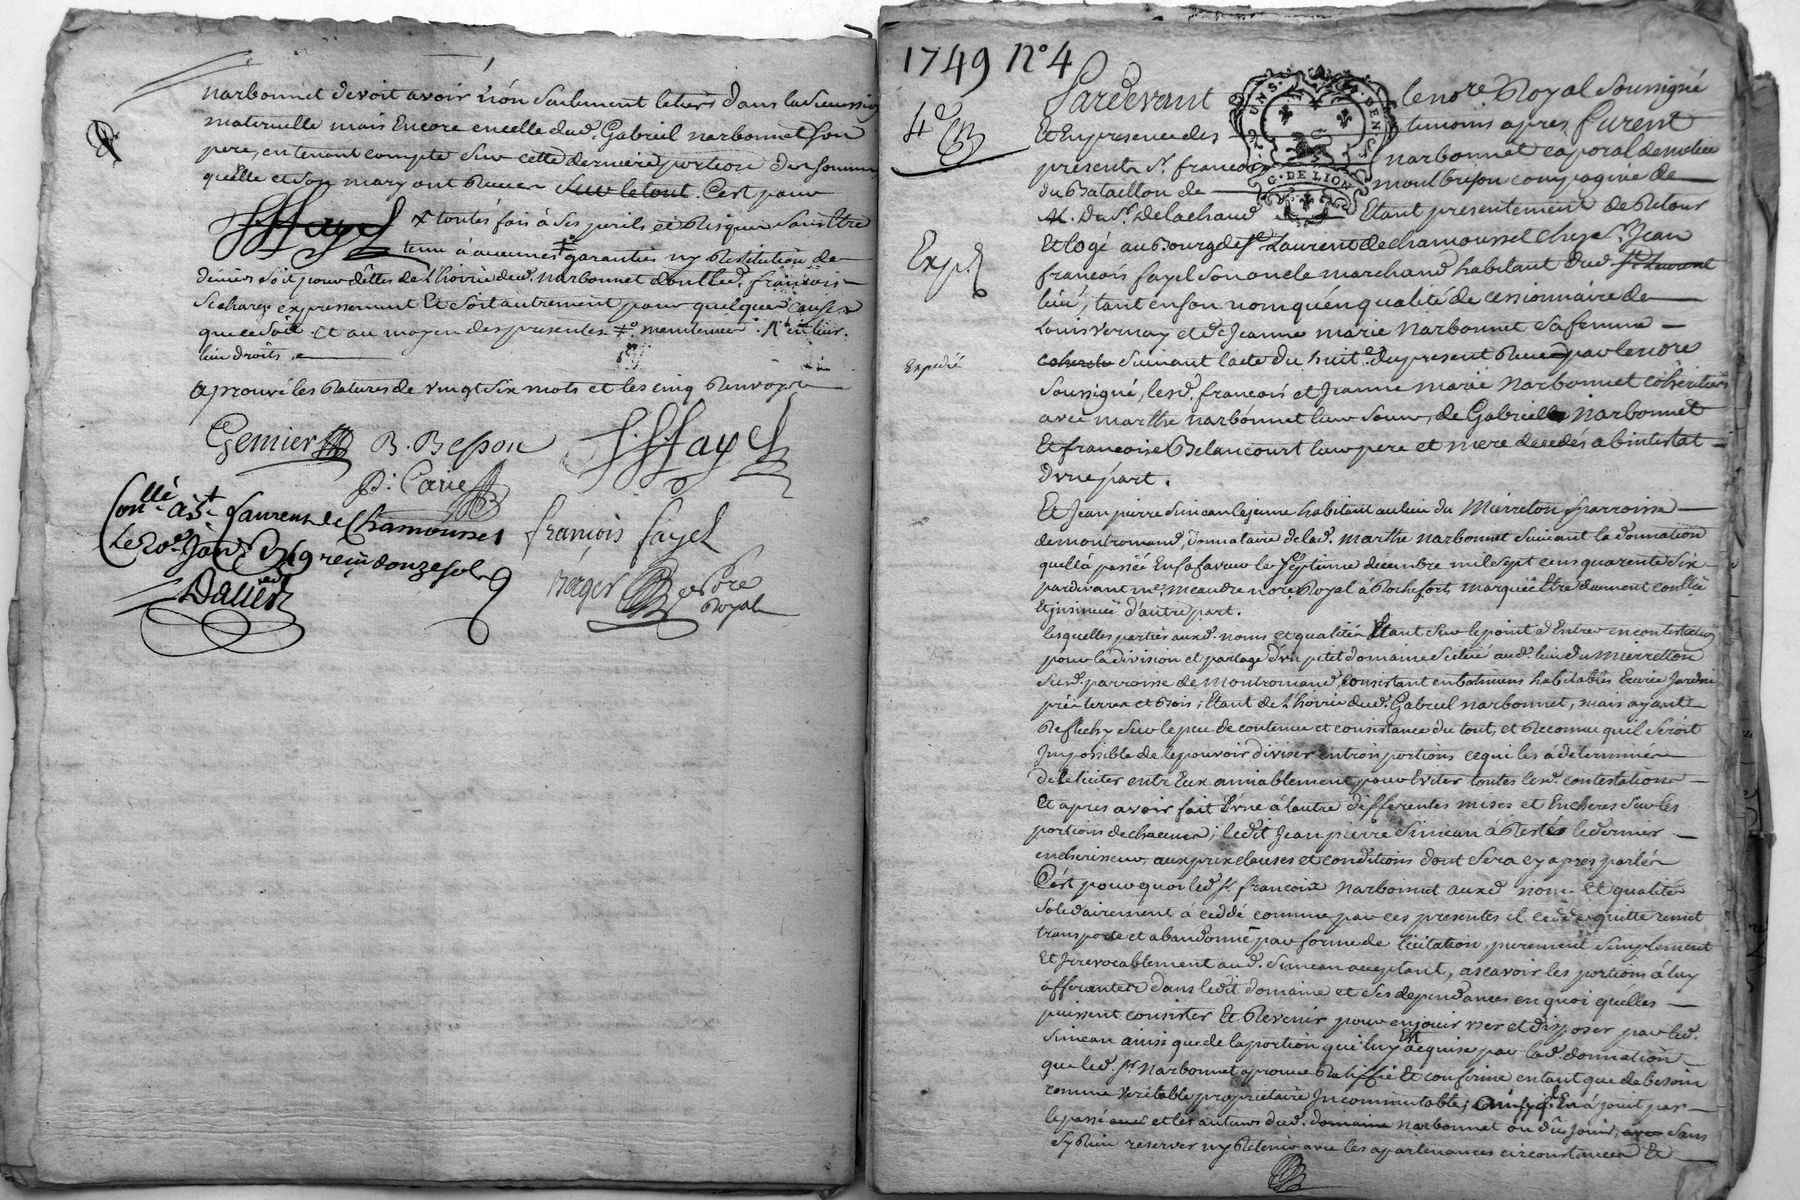 narbonnet devoit avoir non seulement letiers dans la succession
maternelle mais Encore en celle dud. Gabriel narbonnet son
pere, en tenant compte sur cette derniere portion des sommes
quelle et son mary ont Receu sur le tout. C'est pour
JFfayel toutes fois à ses perils et Risques sans Etre
tenu à aucunes garanties ny Restitution de
deniers soit pour dettes de l'hoirie dud. narbonnet dont led. françois
se charge expressement Et soit autrement pour quelque cause
que ce soit. et au moyen des presentes
leur droits
aprouvé les Ratures de vingt six mots et les cinq Renvoys
Gemier B. Besson JFfayel
Conllé à St Laurens de Chamousset françois fayel
Le 20e Janv. 1749 reçu douze sols
Dallier Berger nore Royal
1749 N° 4
Pardevant le nore Royal soussigné
et En presence des temoins apres furent
present Sr. francois narbonnet caporal de milice
du Bataillon de montbrison compagnie de
M. Du Sr. Delachaud Etant presentement de Retour
Exp.
Et logé au Bourg de St Laurent de chamousset chez Sr. Jean
françois fayel son oncle marchand habitant dud. St Laurent
lieu, tant en son nom qu'en qualité de cessionnaire de
Louis Vernay et de Jeanne marie Narbonnet sa femme
Expedié
suivant lacte du huit du present Receu par le nore
soussigné, lesd. françois et Jeanne marie Narbonnet cohéritiers
avec marthe narbonnet leur sœur, de Gabriel narbonnet
Et francoise Belancourt leur pere et mere decedés abintestat
d'une part.
Et Jean pierre Simean le jeune habitant au lieu du Mierreton parroisse
de montromand, donnataire de lad. Marthe narbonnet suivant la donnation
quella passée En sa faveur le septieme decembre mil sept cens quarante six
pardevant me. Meaudre nore. Royal à Rochefort marquée Etre duement conllée
Et insinuée d'autre part.
lesquelles parties auxd. noms et qualités Etant sur le point d'Entrer en contestation
pour la division et partage d'un petit domaine scitué aud. lieu du Mierretton
susd. parroisse de Montromand, consistant en batimens habitables Ecurie Jardin
prés terres et Bois, Etant de l'hoirie dud. Gabriel narbonnet, mais ayant
Reflechy sur le peu de contenue et consistance du tout, et Reconnu quil seroit
Impossible de le pouvoir diviser en trois portions ce qui les a determinés
de liciter entr'Eux amiablement pour Eviter toutes lesd. contestations
Et apres avoir fait l'une à lautre differentes mises et Encheres sur les
portions de chacun, ledit Jean pierre Simean à Resté le dernier
encherisseur, aux prix clauses et conditions dont sera cy apres parlé
C'est pourquoi led. Sr. francoix Narbonnet auxd. noms Et qualités
solidairement à ceddé comme par ces presentes il cedde quitte remet
transporte et abandonne par forme de licitation, purement simplement
Et Irrevocablement aud. Simean acceptant, ascavoir les portions à luy
afferantes dans ledit domaine et ses dependances en quoi quelles
puissent consister Et Revenir pour en jouir user et disposer par led.
Simean ainsi que de la portion qui luy Est acquise par lad. donnation
que led. Sr Narbonnet aprouve Ratiffie Et confirme entant que de besoin
comme Veritable proprietaire Incommutable, Ainsy qu'En à jouit par
le passé et les auteurs dud. domaine Narbonnet ou du jouir, avec sans
sy Rien reserver ny Retenir avec les apartenances circonstances Et